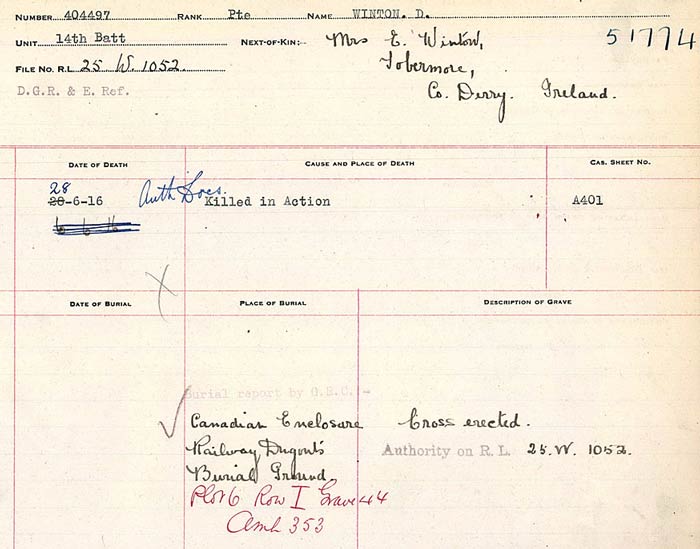 NUMBER 404497 RANK Pte NAME WINTON. D.
UNIT 14th Batt NEXT-OF-KIN:- Mrs E. Winton, 51774
Tobermore,
FILE NO. R.L. 25. W. 1052.
Co. Derry. Ireland.
D.G.R. & E. Ref.
DATE OF DEATH CAUSE AND PLACE OF DEATH CAS. SHEET NO.
28
28-6-16 Auth Docs. Killed in Action A401
6 6 16
DATE OF BURIAL PLACE OF BURIAL DESCRIPTION OF GRAVE
Burial report by G.E.C.:-
Canadian Enclosure Cross erected.
Railway Dugouts Authority on R. L. 25. W. 1052.
Burial Ground.
Plot 6 Row I Grave 44
353